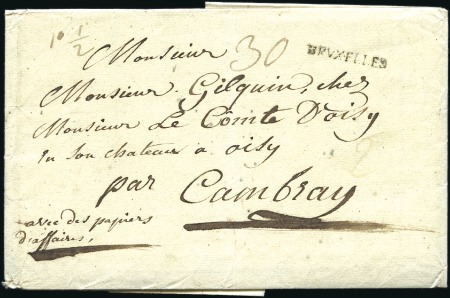 1° 1/2
Monsieur 30 BRUXELLES
Monsieur. Gilquin, chez
Monsieur Le Comte D'oisy
en son chateur a oisy
par Cambray
avec des papiers
d'affaires,